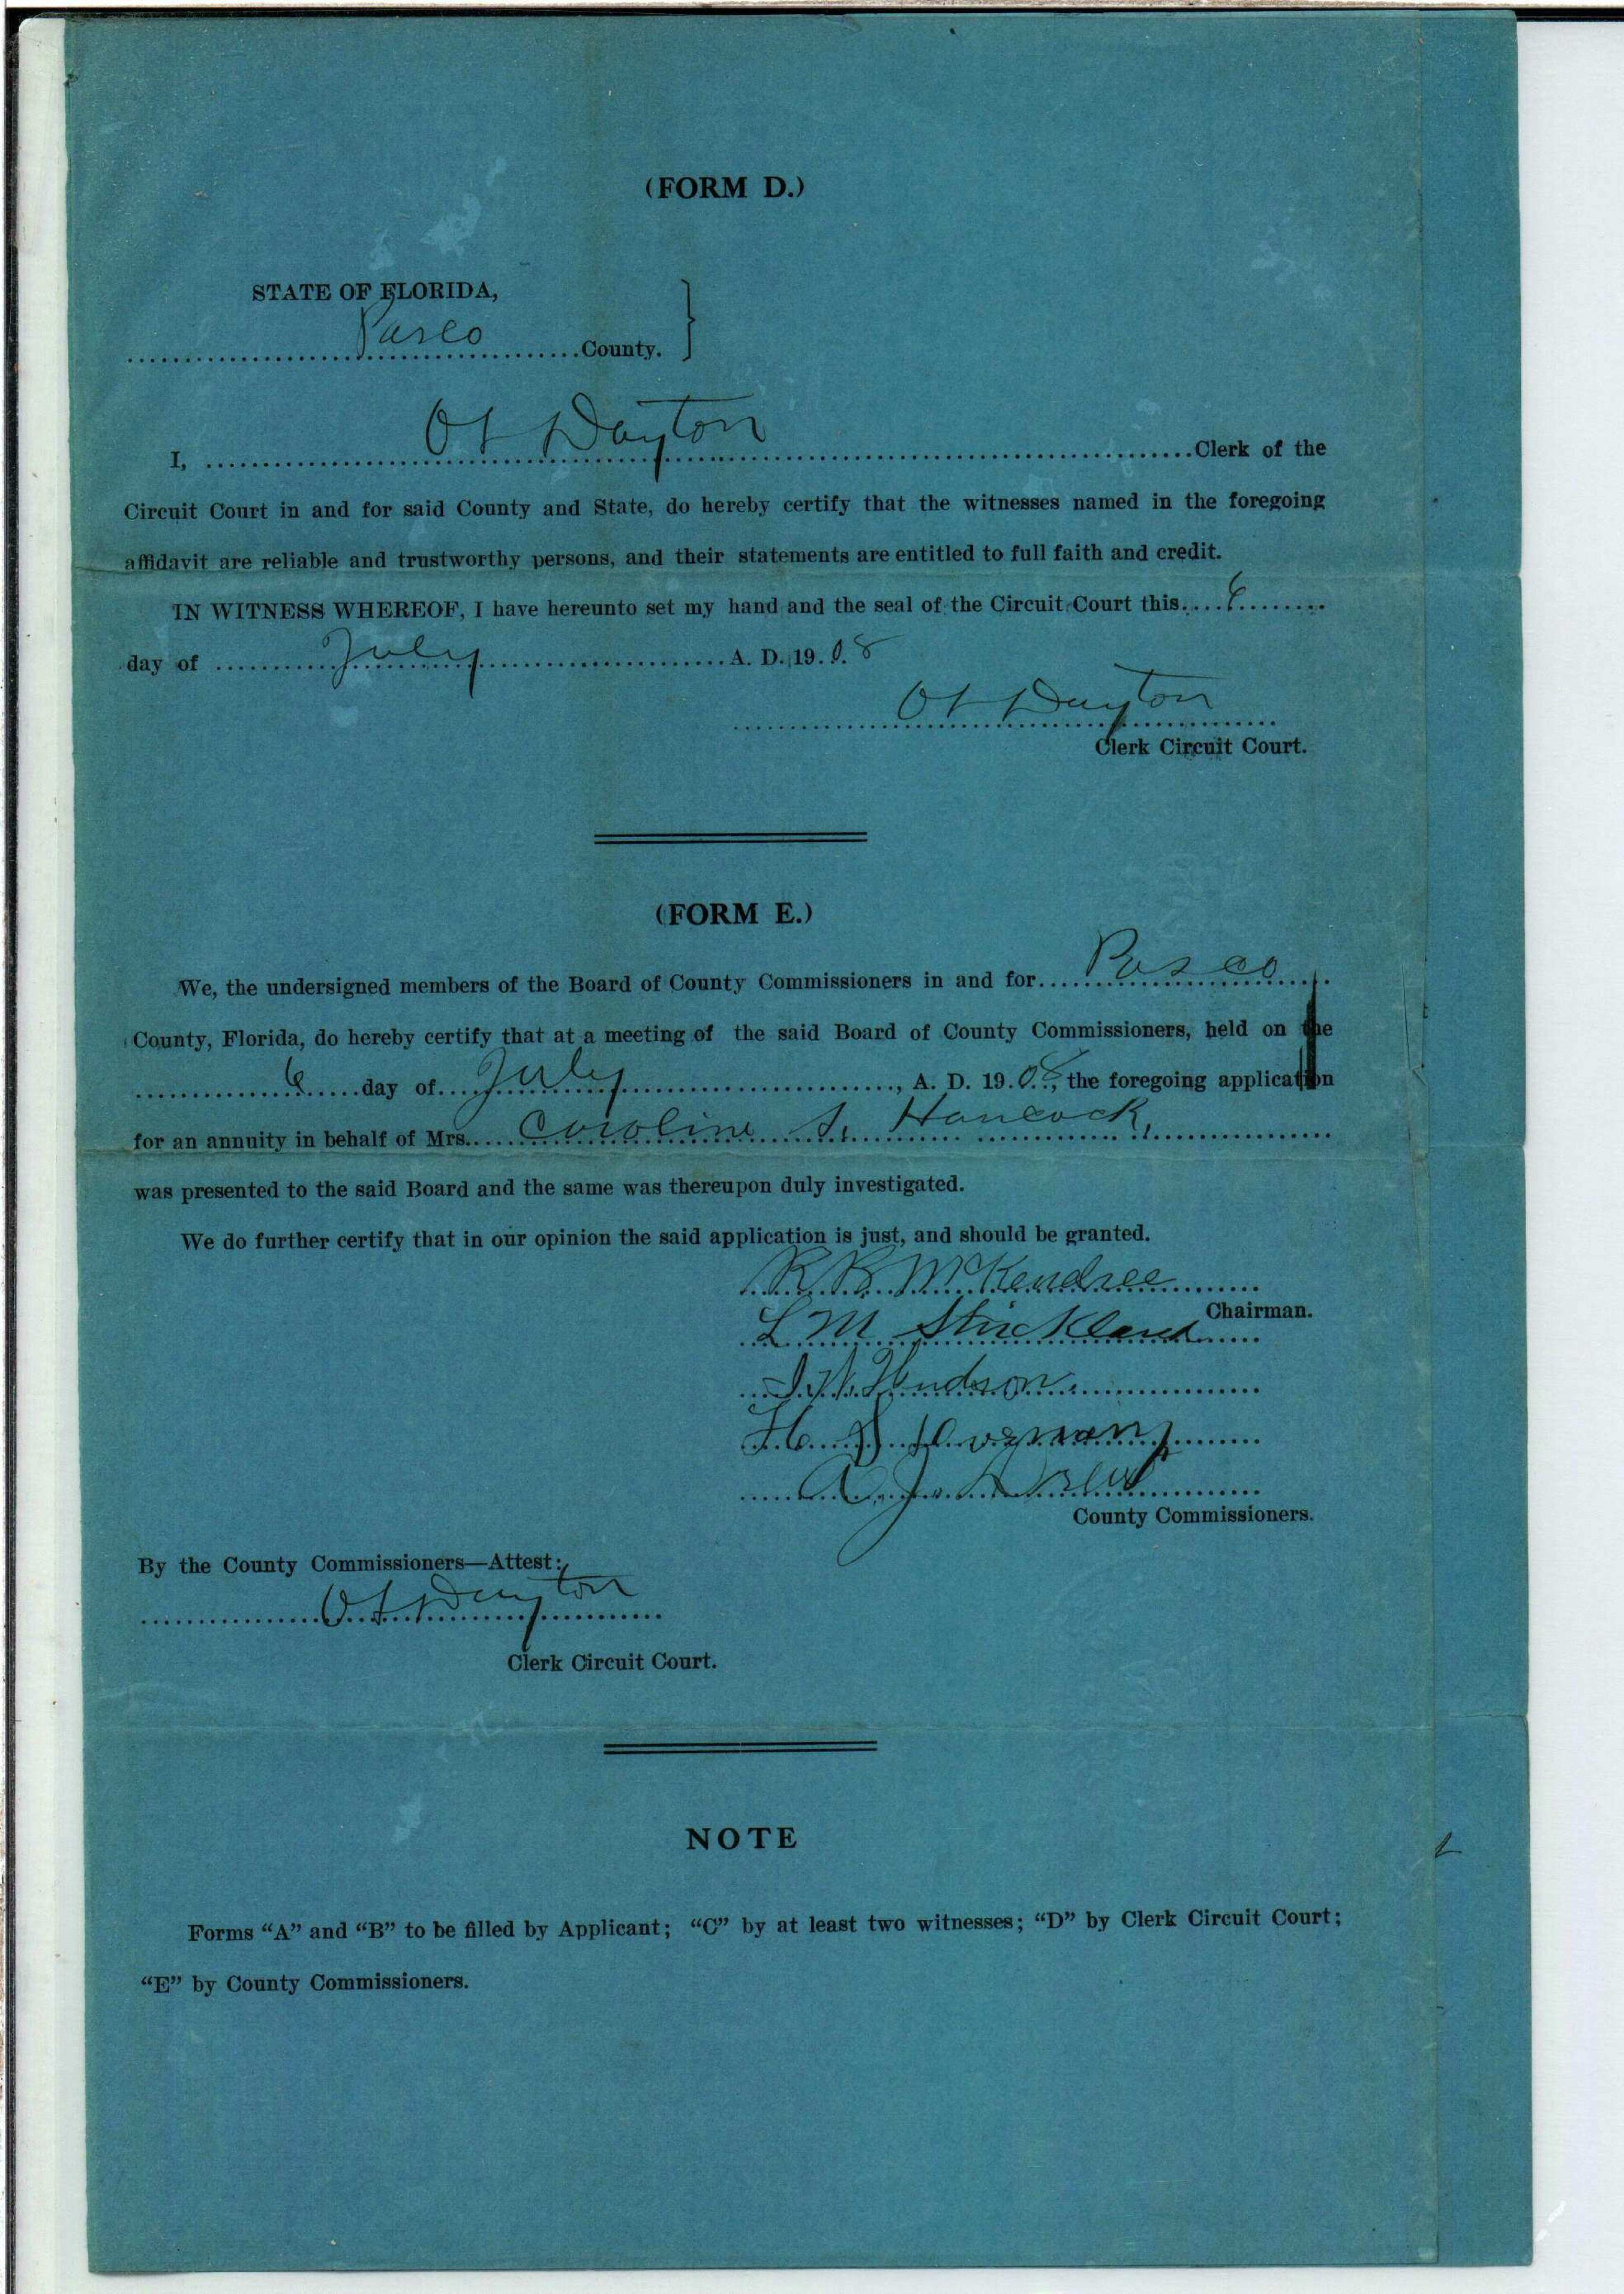 (FORM D.)
STATE OF FLORIDA,
Pasco County.
I, O L Dayton Clerk of the
Circuit Court in and for said County and State, do hereby certify that the witnesses named in the foregoing
affidavit are reliable and trustworthy persons, and their statements are entitled to full faith and credit.
IN WITNESS WHEREOF, I have hereunto set my hand and the seal of the Circuit Court this 6
day of July A. D. 1908
O L Dayton
Clerk Circuit Court.
(FORM E.)
We, the undersigned members of the Board of County Commissioners in and for Pasco
County, Florida, do hereby certify that at a meeting of the said Board of County Commissioners, held on the
6 day of July, A. D. 1908, the foregoing application
for an annuity in behalf of Mrs. Caroline S. Hancock,
was presented to the said Board and the same was thereupon duly investigated.
We do further certify that in our opinion the said application is just, and should be granted.
R B McKendree
Chairman.
L M Strickland
Hudson
County Commissioners.
By the County Commissioners—Attest:
O L Dayton
Clerk Circuit Court.
NOTE
Forms “A” and “B” to be filled by Applicant; “C” by at least two witnesses; “D” by Clerk Circuit Court;
“E” by County Commissioners.